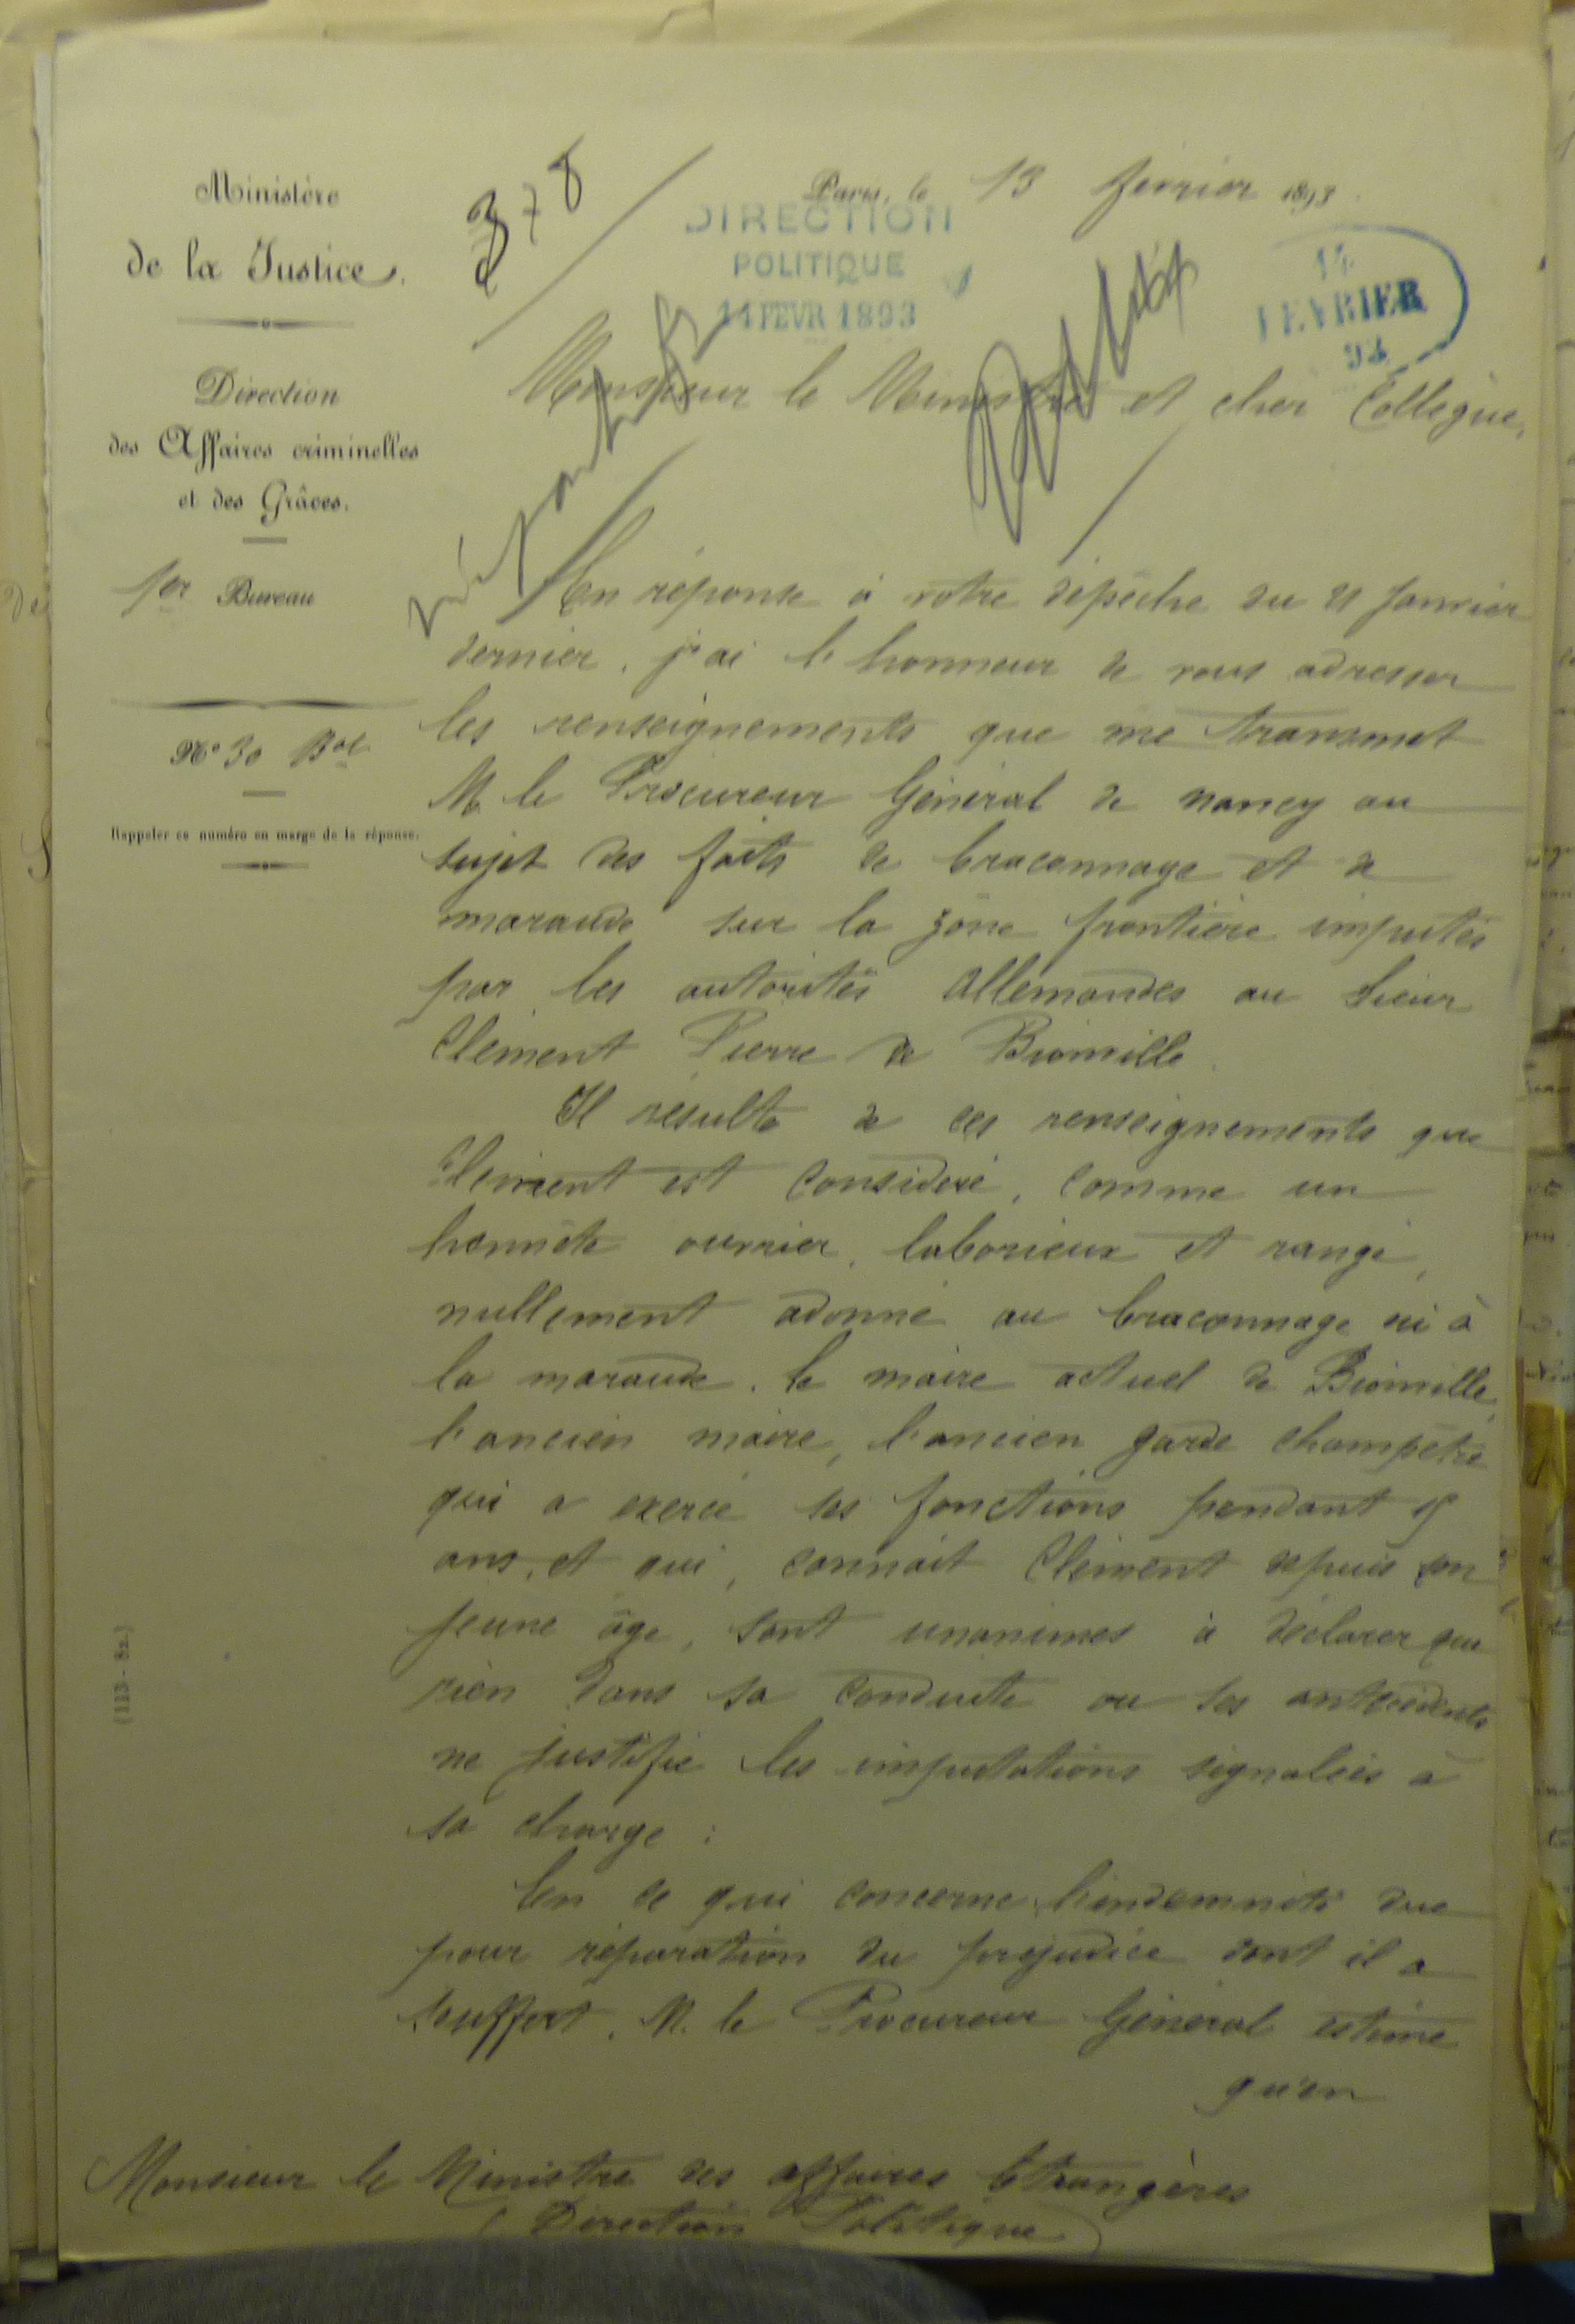 Ministère
de la Justice.
Direction
des Affaires criminelles
et des Grâces.
1er Bureau
No 30 Bal
Rappeler ce numéro en marge de la réponse.
(113-82.)
378
Paris, le 13 février 1893.
DIRECTION
POLITIQUE
14 FEVR 1893
14
FEVRIER
93
Monsieur le Ministre et cher Collègue,
En réponse à votre dépêche du 21 Janvier
dernier, j'ai l'honneur de vous adresser
les renseignements que me transmet
M. le Procureur Général de Nancy au
sujet des faits de braconnage et de
maraude sur la zône frontière imputés
par les autorités allemandes au sieur
Clément Pierre de Bionville.
Il résulte de ces renseignements que
Clément est considéré, comme un
honnête ouvrier, laborieux et rangé,
nullement adonné au braconnage ni à
la maraude. Le maire actuel de Bionville,
l'ancien maire, l'ancien garde champêtre
qui a exercé ses fonctions pendant
ans, et qui, connait Clément depuis son
jeune âge, sont unanimes à déclarer que
rien dans sa conduite ou ses antécédents
ne justifie les imputations signalées à
sa charge :
En ce qui concerne l'indemnité due
pour réparation du préjudice dont il a
souffert, M. le Procureur Général estime
qu'en
Monsieur le Ministre des affaires Etrangères
(Direction Politique)